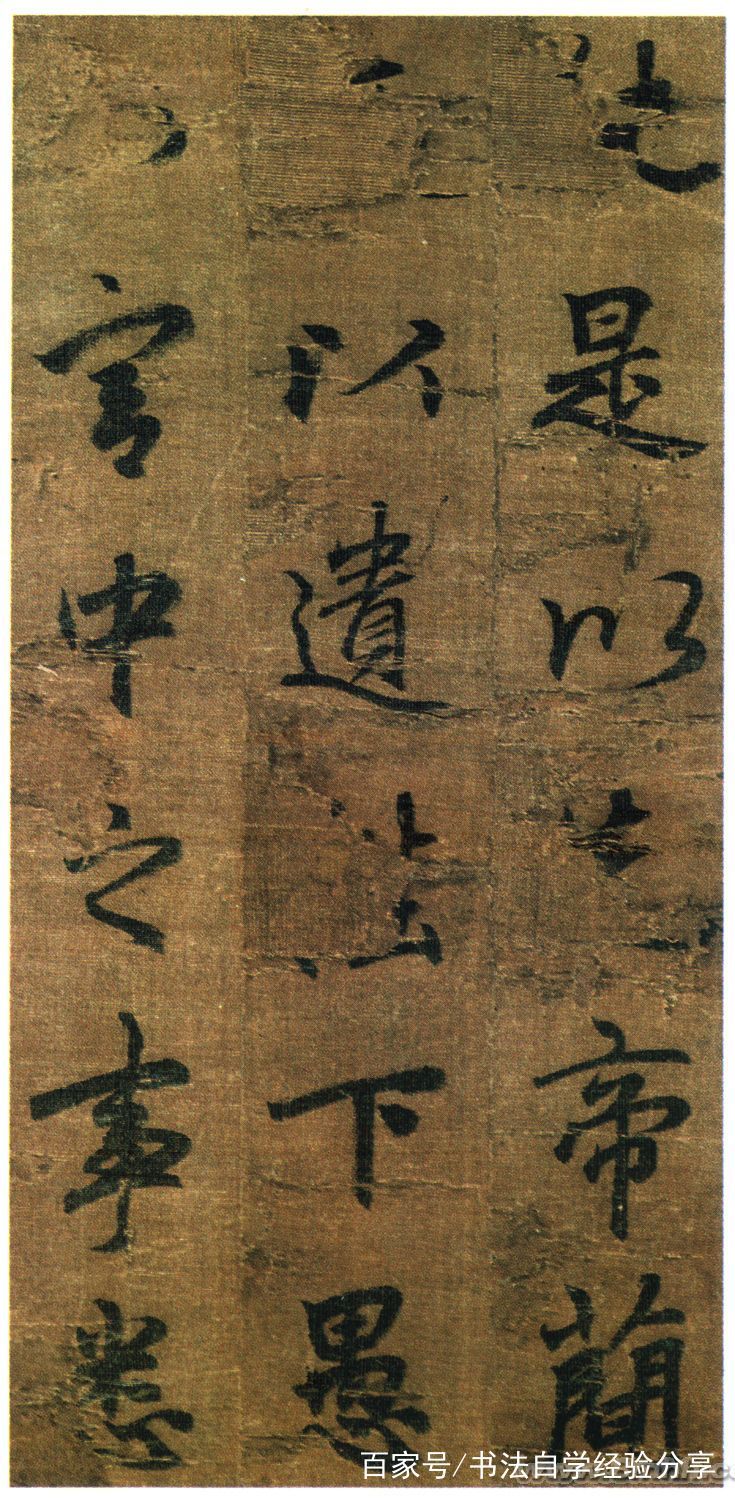 是以先帝簡
以遺陛下愚
宮中之事悉
百家号/书法自学经验分享